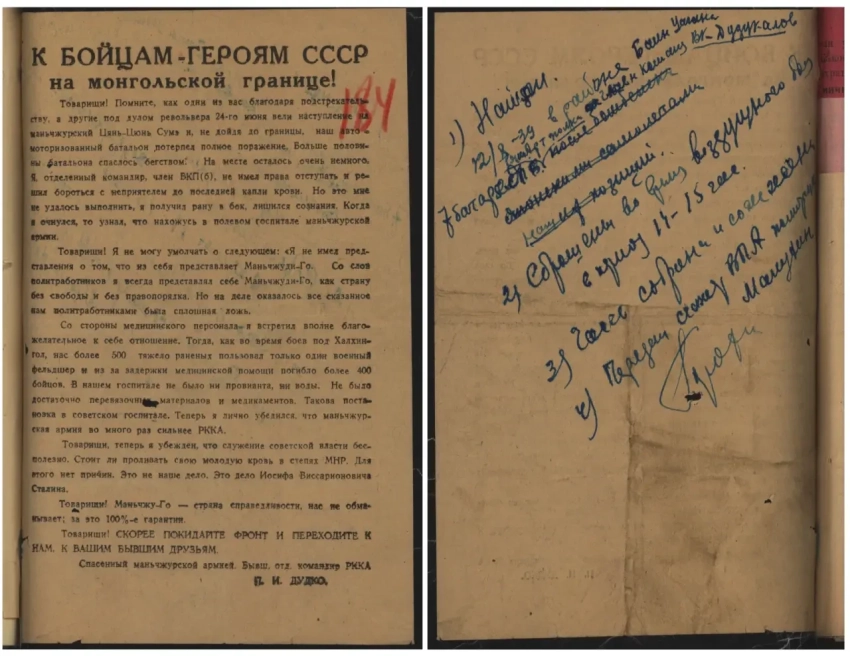 К БОЙЦАМ-ГЕРОЯМ СССР
на монгольской границе!
184
Товарищи! Помните, как один из вас благодаря подстрекатель-
ству, а другие под дулом револьвера 24-го июня вели наступление на
маньчжурский Цянь-Цюнь Сумэ и, не дойдя до границы, наш авто-
моторизованный батальон потерпел полное поражение. Больше половин-
ны батальона спаслось бегством. На месте осталось очень немного.
Я, отделенный командир, член ВКП(б), не имел права отступать и ре-
шил бороться с неприятелем до последней капли крови. Но это мне
не удалось выполнить, я получил рану в бок, лишился сознания. Когда
я очнулся, то узнал, что нахожусь в полевом госпитале маньчжурской
армии.
Товарищи! Я не могу умолчать о следующем: «Я не имел пред-
ставления о том, что из себя представляет Маньчжуди-Го. Со слов
политработников я всегда представлял себе Маньчжуди-Го, как страну
без свободы и без правопорядка. Но на деле оказалось все сказанное
нам политработниками была сплошная ложь.
Со стороны медицинского персонала я встретил вполне благо-
желательное к себе отношение. Тогда, как во время боев под Халхин-
гол, нас более 500 тяжело раненых пользовал только один военный
фельдшер и из за задержки медицинской помощи погибло более 400
бойцов. В нашем госпитале не было ни провианта, ни воды. Не было
достаточно перевязочных материалов и медикаментов. Такова поста-
новка в советском госпитале. Теперь я лично убедился, что маньчжур-
ская армия во много раз сильнее РККА.
Товарищи, теперь я убежден, что служение советской власти бес-
полезно. Стоит ли проливать свою молодую кровь в степях МНР. Для
этого нет причин. Это не наше дело. Это дело Иосифа Виссарионовича
Сталина.
Товарищи! Маньчжу-Го — страна справедливости, нас не обма-
нывает; за это 100%-е гарантии.
Товарищи! СКОРЕЕ ПОКИДАЙТЕ ФРОНТ И ПЕРЕХОДИТЕ К
НАМ, К ВАШИМ БЫВШИМ ДРУЗЬЯМ.
Спасенный маньчжурской армией. Бывш. отд. командир РККА
П. И. ДУДКО.
1) Найден.
12/8-39 в районе Баин Цагана
7 батареи после
японскими самолетами
наших позиций.
2) Сброшены во время воздушного боя
в период 14-15 час.
3) Часть собрана и сожжена
4) Передал